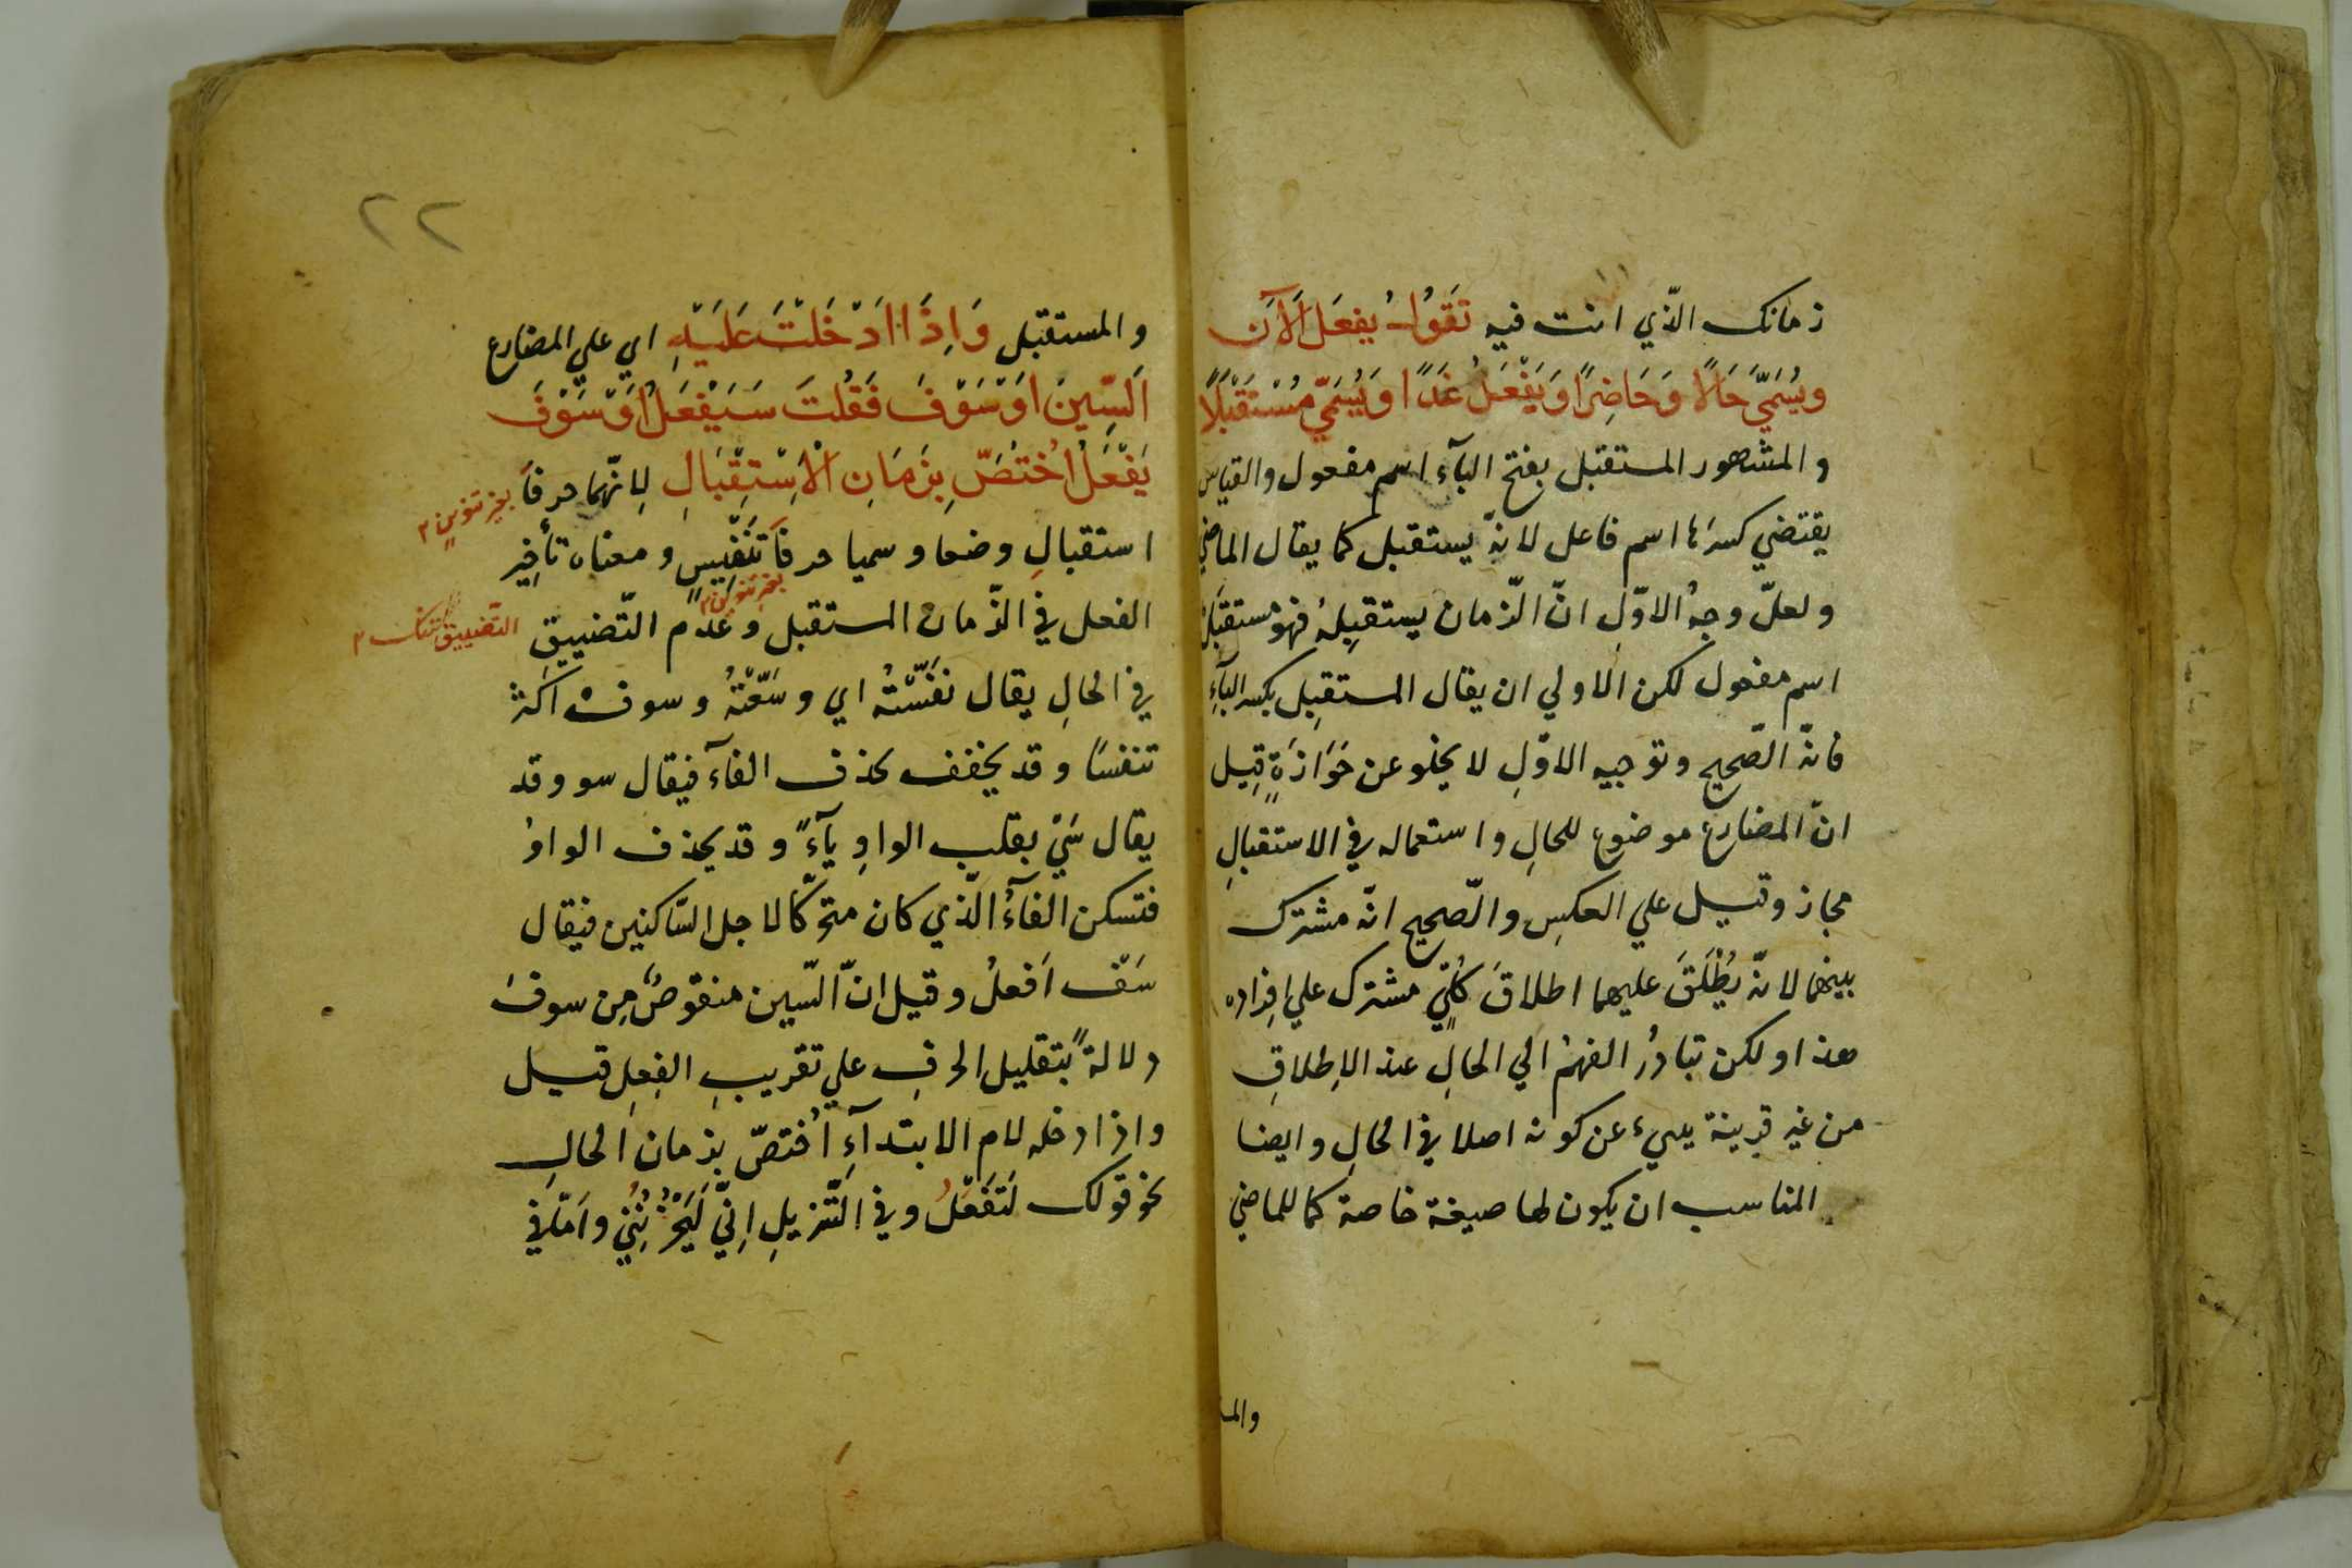 زمانك الّذي انت فيه تَقُولُ يفعَل اَلآَن
ويُسَمَّي حَالاً وَحَاضِرًا وَيَفْعَلُ غَدًا وَيُسَمّي مُسْتَقْبَلاً
والمشهور المستقبل بفتح البآء اسم مفعول والقياس
يقتضي كسرَها اسم فاعل لانهّ يستقبل كما يقال الماضي
ولعلّ وجهُ الاوّلِ انّ الزّمان يستقبِلهُ فهو مستقبَلٌ
اسم مفعول لكن الاولي ان يقال المستقبِل بكسر البآءِ
فانهّ الصّحيح وتوجيه الاوّلِ لا يخلو عن حَزَازَةٍ قيل
انّ المضارع موضوع للحالِ واستعماله في الاستقبالِ
مجاز وقيل علي العكسِ والصّحيح انهّ مشترك
بينهما لانهّ يُطْلَقَ عليهما اطلاقَ كُلّيٍ مشترك علي افراده
هذا ولكن تبادرُ الفهمُ الي الحالِ عند الاِطلاقِ
من غير قرينة ينبيء عن كونه اصلا في الحالِ وايضا
المناسب ان يكون لها صيغة خاصة كما للماضي
والمـ
٢٢
والمستقبل وَاِذَا اَدْخَلْتَ عَلَيْهِ اي علي المضارع
اَلسّينَ اَوْ سَوْفَ فَقُلتَ سَيَفْعَلُ اَوْ سَوْفَ
يَفْعَلُ اُخْتُصَّ بِزَمَانِ الْاِسْتِقْبَالِ لِانّهما حرفاَ بغير تنوينٍ ٢
استقبالِ وضعا وسميا حرفاَ تَنَفّيسٍ ومعناه تأخير
بغير تنوين ٢
الفعل في الزّمان المستقبل وعَدَم التّضييقِ التّضييق تنك ٢
في الحالِ يقال نفّستهُ اي وسّعْتهُ وسوفْ اكثر
تنفسًا وقد يخفف بحذف الفآء فيقال سو وقد
يقال سَيْ بقلب الواوِ يآءً وقد يحذف الواوُ
فتسكن الفآءُ الّذي كان متحّركا لاجل السّاكنين فيقال
سَفْ اَفعلُ وقيل انّ السّين منقوصٌ مِن سوفَ
دلالةً بتقليل الحرفِ علي تقريبِ الفعِلِ قيل
واذا دخله لام الابتدآءِ اُختصّ بزمان الحالِ
نحو قولك لَتَفَعْلُ وفي التّنزيلِ اِنّي لَيَحْزُنُنِي وامّا في